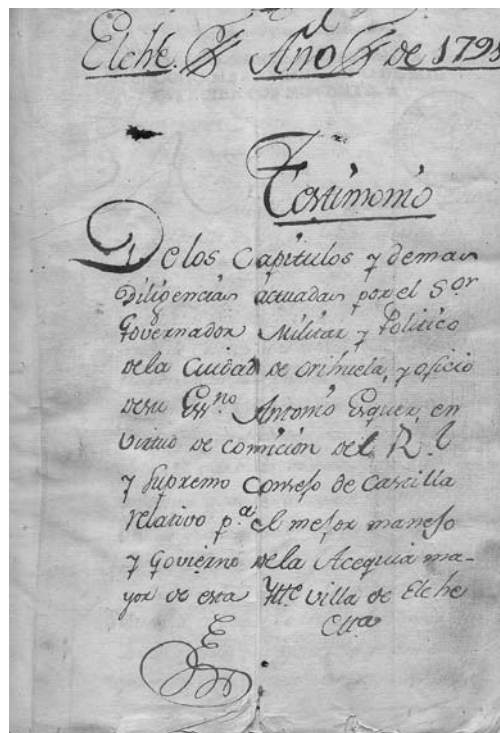 Elche. Año de 1791
Testimonio
De los Capitulos y demas
Diligencias actuadas por el Sor
Governador Militar y Politico
de la Cuidad de orihuela, y oficio
de su Essno Antonio Esquer, en
virtud de comición del Rl
y Supremo Consejo de Castilla
relativo pa el mejor manejo
y Govierno de la Acequia ma-
yor de esta Ytte villa de Elche
Etta